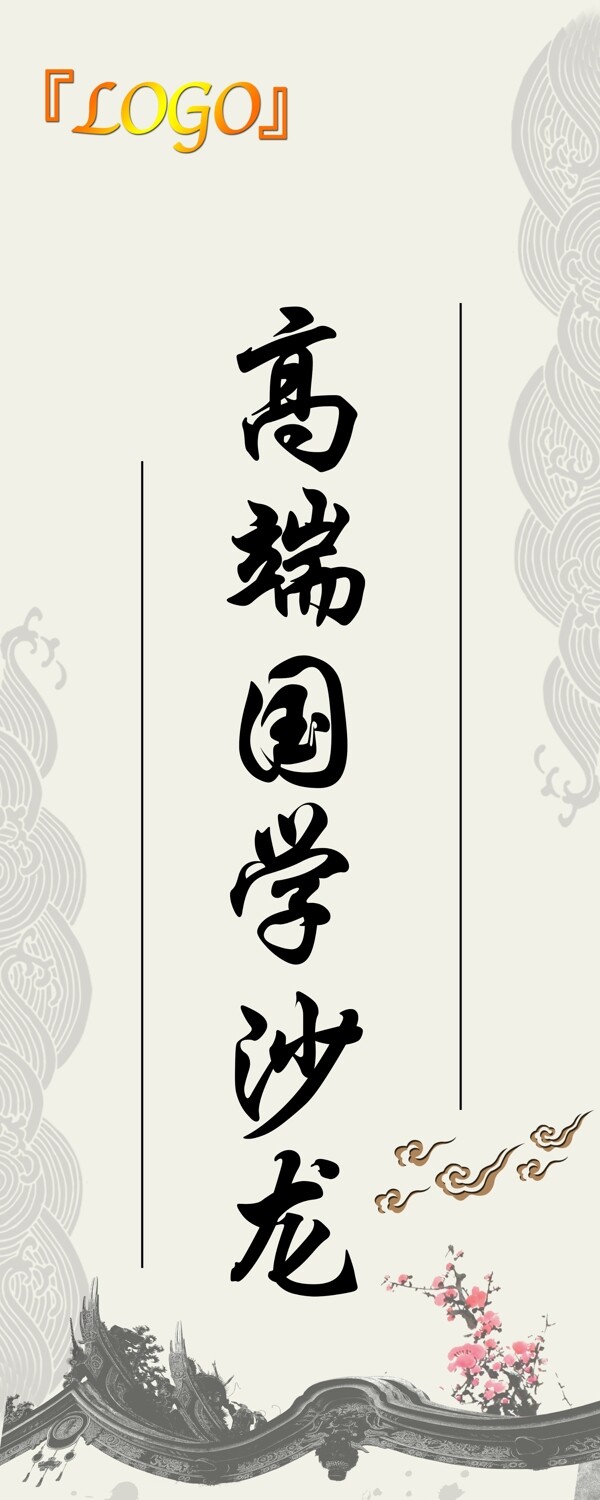 『LOGO』
高端国学沙龙